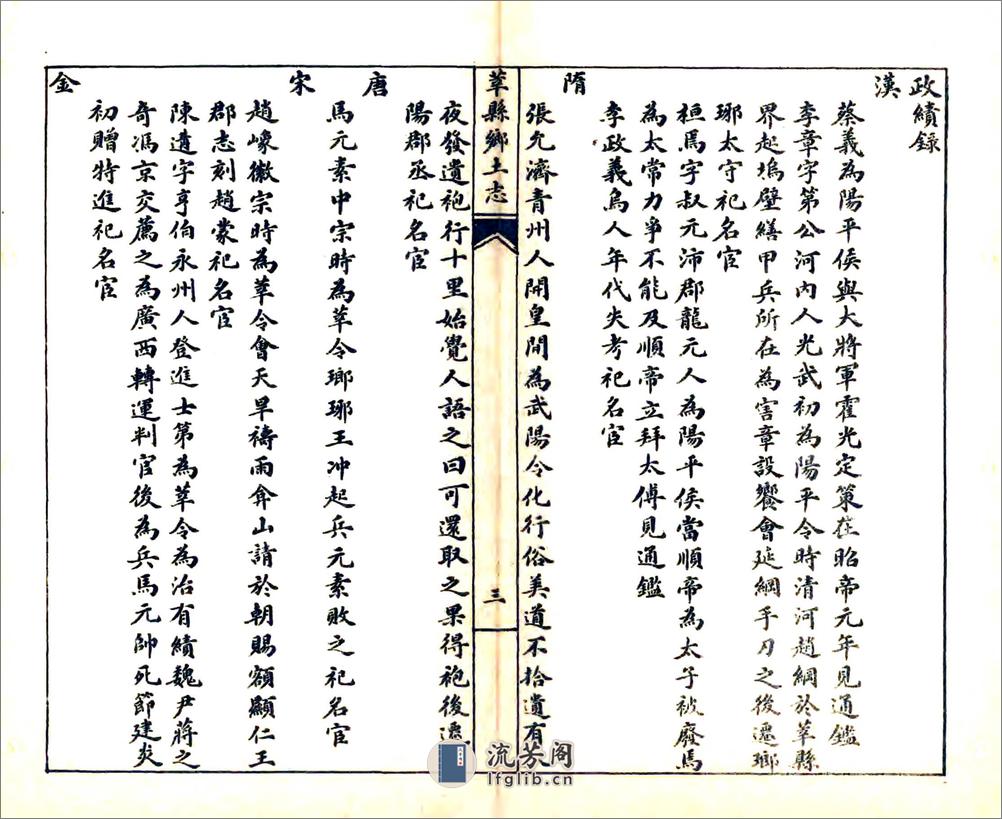 政績錄
漢
蔡義為陽平侯與大將軍霍光定策在昭帝元年見通鑑
李章字第公河內人光武初為陽平令時清河趙綱於莘縣
界起塢壁繕甲兵所在為害章設饗會延綱手刃之後遷瑯
琊太守祀名宦
桓馬字叔元沛郡龍元人為陽平侯當順帝為太子被廢馬
為太常力爭不能及順帝立拜太傅見通鑑
李政義烏人年代失考祀名宦
隋
張允濟青州人開皇間為武陽令化行俗美道不拾遺有
莘縣鄉土志
三
夜發遺袍行十里始覺人語之曰可還取之果得袍後遷
陽郡丞祀名宦
唐
馬元素中宗時為莘令瑯琊王冲起兵元素敗之祀名宦
宋
趙㠓徽宗時為莘令會天旱禱雨弇山請於朝賜額顯仁王
郡志刻趙蒙祀名宦
陳遘字亨伯永州人登進士第為莘令為治有績魏尹蔣之
奇馮京交薦之為廣西轉運判官後為兵馬元帥死節建炎
初贈特進祀名宦
金
流芳阁
lfglib.cn